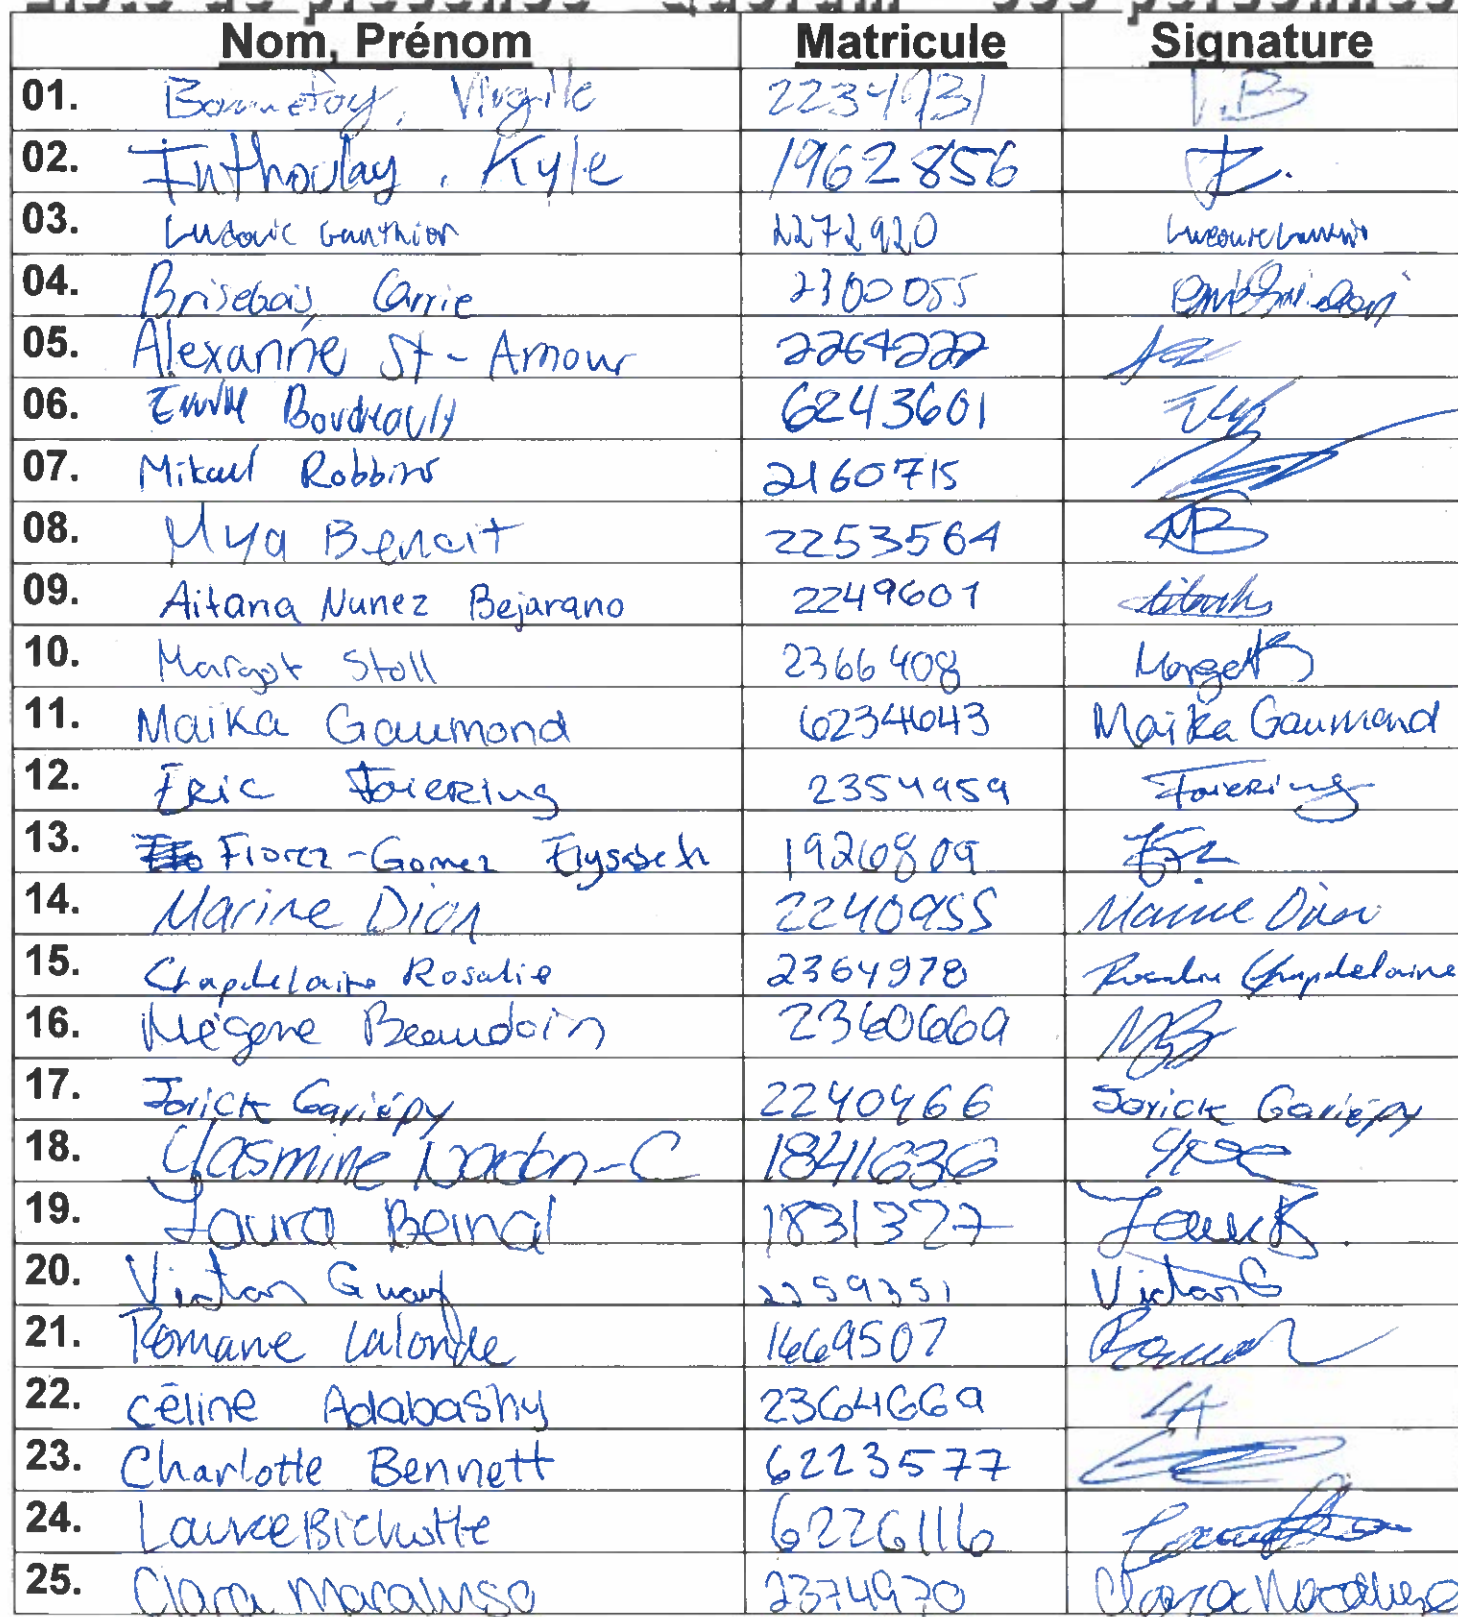 Liste de présence - Quorum - personnes
Nom, Prénom Matricule Signature
01. Bonnefoy, Virgile 2234931 V.B
02. Inthoulay, Kyle 1962856
03. Ludovic Gauthier 2272920
04. Brisebois, Carrie 2300055
05. Alexanne St-Amour 2264222
06. Emilie Boudreault 6243601
07. Mikael Robbins 2160715
08. Mya Benoit 2253564 MB
09. Aitana Nunez Bejarano 2249601
10. Margot Stoll 2366408 Margot
11. Maika Gaumond 6234643 Maika Gaumond
12. Eric Foiering 2354959 Foiering
13. Florez-Gomez Elysabeth 1926809
14. Marine Dion 2240955 Marine Dion
15. Chapdelaine Rosalie 2364978 Rosalie Chapdelaine
16. Mégane Beaudoin 2360669 MB
17. Jorick Gariépy 2240466 Jorick Gariépy
18. Yasmine -C 1841636
19. Laura Beinal 1831327 Laura B.
20. Victor Guay 2259351 Victor G
21. Romane Lalonde 1669507 Roman
22. Céline Adabashy 2364669 CA
23. Charlotte Bennett 6223577
24. Laurence Bichotte 6226116
25. Clara Macaluso 2374970 Clara